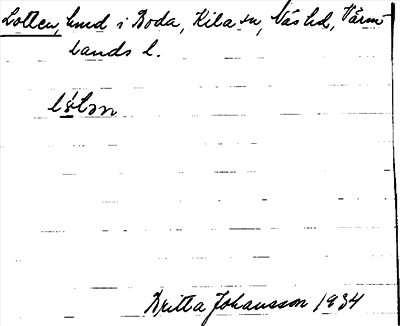 Lotten, hmd i Boda, Kila sn, Näs hd, Värm-
lands l.
Britta Johansson 1934